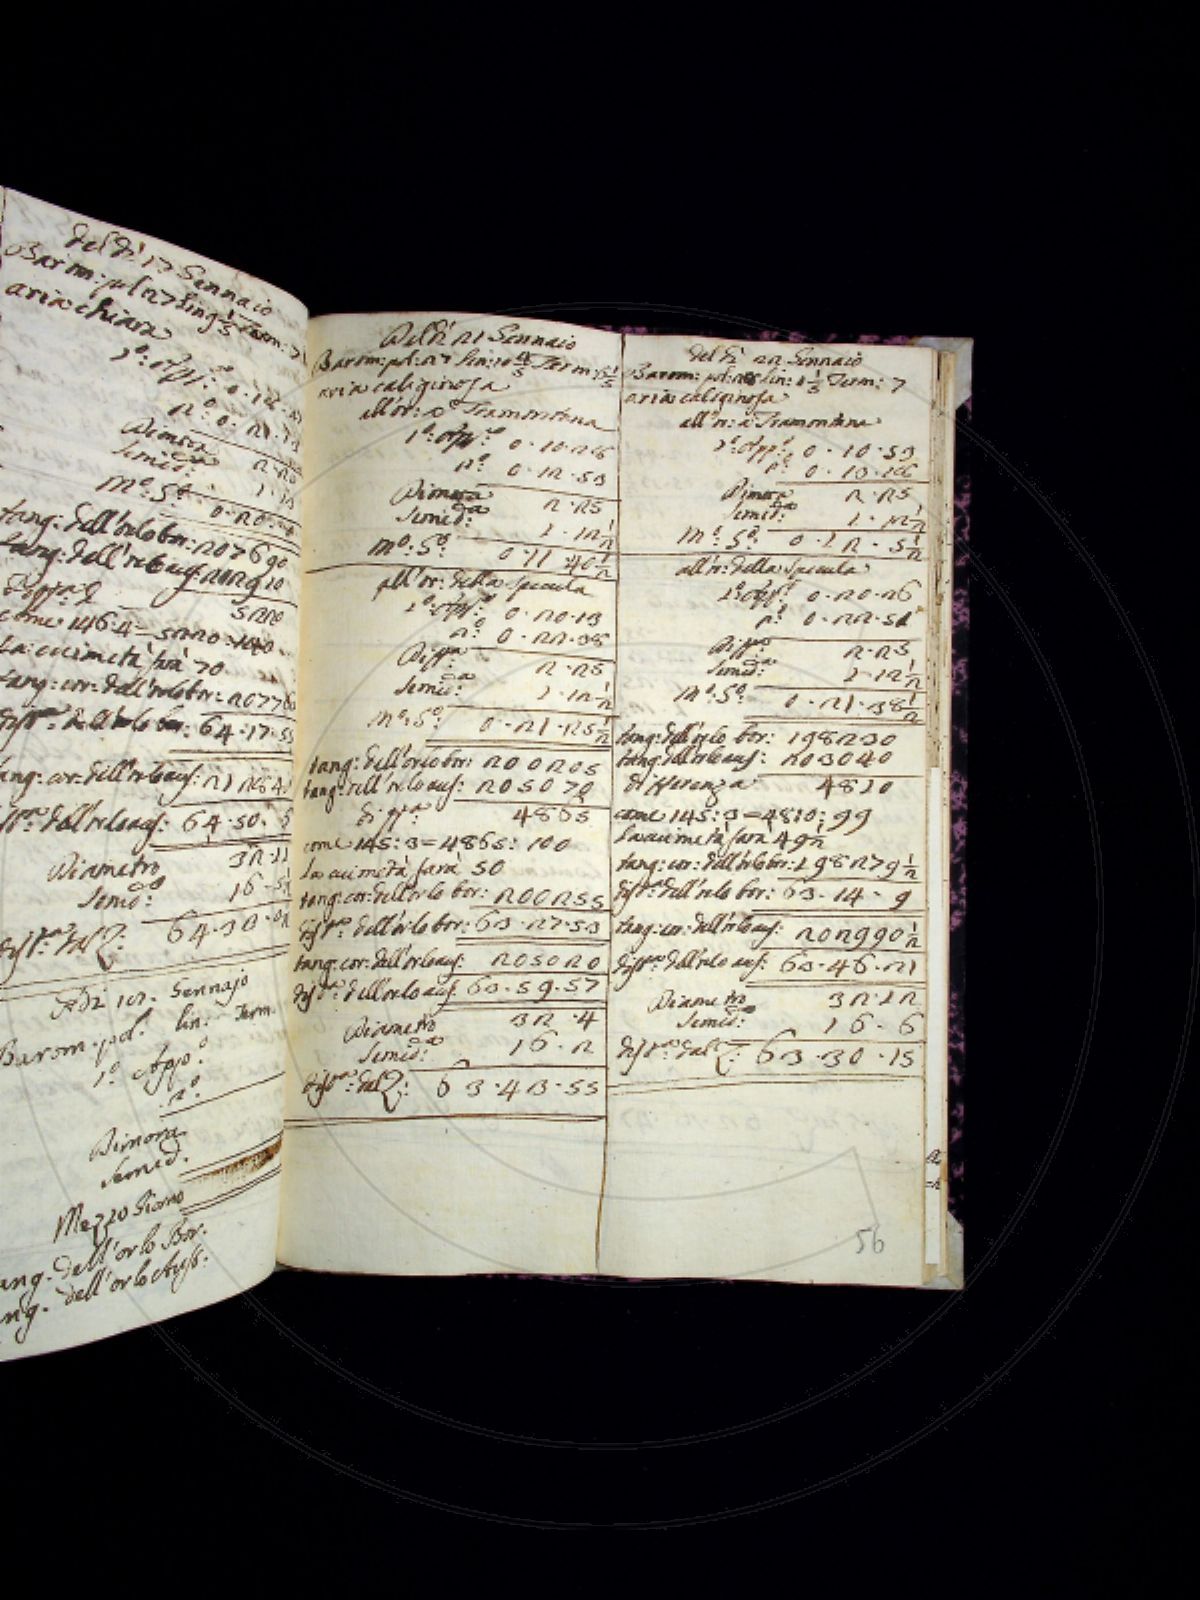 del dì 17 Gennaio
Barom: pol 27 lin 9 1/5 Term: 7
aria chiara
1°: App:° 0.18.
2°: 0.21.
Dimora 2.20
Semid:ª 1.10
M°: G° 0.20.
tang: dell'orlo bor: 207690
tang: dell'orlo aus: 212910
5220
come 146:4=5220:140
La cui metà sarà 70
tang: cor: dell'orlo bor: 20776
dist:ª dell'orlo bor: 64.17.5
tang: cor: dell'orlo aus: 21284
dist:ª dell'orlo aus: 64.50.
Diametro 32.11
Semid:ª 16.5
dist:ª dal Z: 64.30.
Gennajo
Barom. pol. lin. Term.
1° App.°
2°.
Dimora
Semid.
Mezzo Giorno
tang. dell'orlo Bor.
tang. dell'orlo Aus.
Del dì 21 Gennaio
Barom: pol: 27 lin: 10 Term:
aria caliginosa
all'or: a Tramontana
1°: App:° 0.10.28
2°. 0.12.53
Dimora 2.25
Semid:ª 1.12 1/2
M°: G°: 0.11.40 1/2
all'or: della Specula
1°: App:° 0.20.13
2°. 0.22.38
Diff:ª 2.25
Semid:ª 1.12 1/2
M°: G°: 0.21.25 1/2
tang: dell'orlo bor: 200205
tang: dell'orlo aus: 205070
diff:ª 4865
come 145:3=4865:100
la cui metà sarà 50
tang: cor: dell'orlo bor: 200255
dist:ª dell'orlo bor: 63.27.53
tang: cor: dell'orlo aus: 205020
dist:ª dell'orlo aus: 63.59.57
Diametro 32.4
Semid:ª 16.2
dist:ª dal Z: 63.43.55
del dì 22 Gennaio
Barom: pol: 28 lin: 1/5 Term: 7
aria caliginosa
all'or: a Tramontana
1°: App:° 0.10.53
2° 0.13.18
Dimora 2.25
Semid:ª 1.12 1/2
M°: G°: 0.12.5 1/2
all'or: della Specula
1°: App:° 0.20.26
2° 0.22.51
Diff:ª 2.25
Semid:ª 1.12 1/2
M°: G°: 0.21.38 1/2
tang: dell'orlo bor: 198230
tang: dell'orlo aus: 203040
differenza 4810
come 145:3=4810:99
la cui metà sarà 49 1/2
tang: cor: dell'orlo bor: 198279 1/2
dist:ª dell'orlo bor: 63.14.9
tang: cor: dell'orlo aus: 202990 1/2
dist:ª dell'orlo aus: 63.46.21
Diametro 32.12
Semid:ª 16.6
dist:ª dal Z: 63.30.15
56